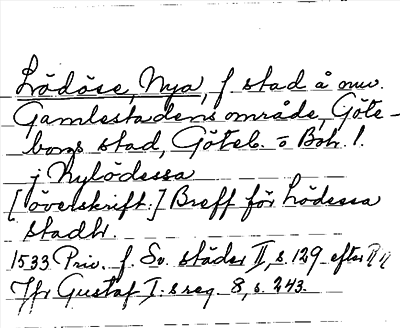 Lödöse, Nya, f stad å nuv.
Gamlestadens område, Göte-
borgs stad, Göteb. o Boh. l.
j Nylödessa
[överskrift:] Breff för Lödessa
stadh.
1533 Priv. f. Sv. städer II, s. 129 efter
Jfr Gustaf I:s reg. 8, s. 243.